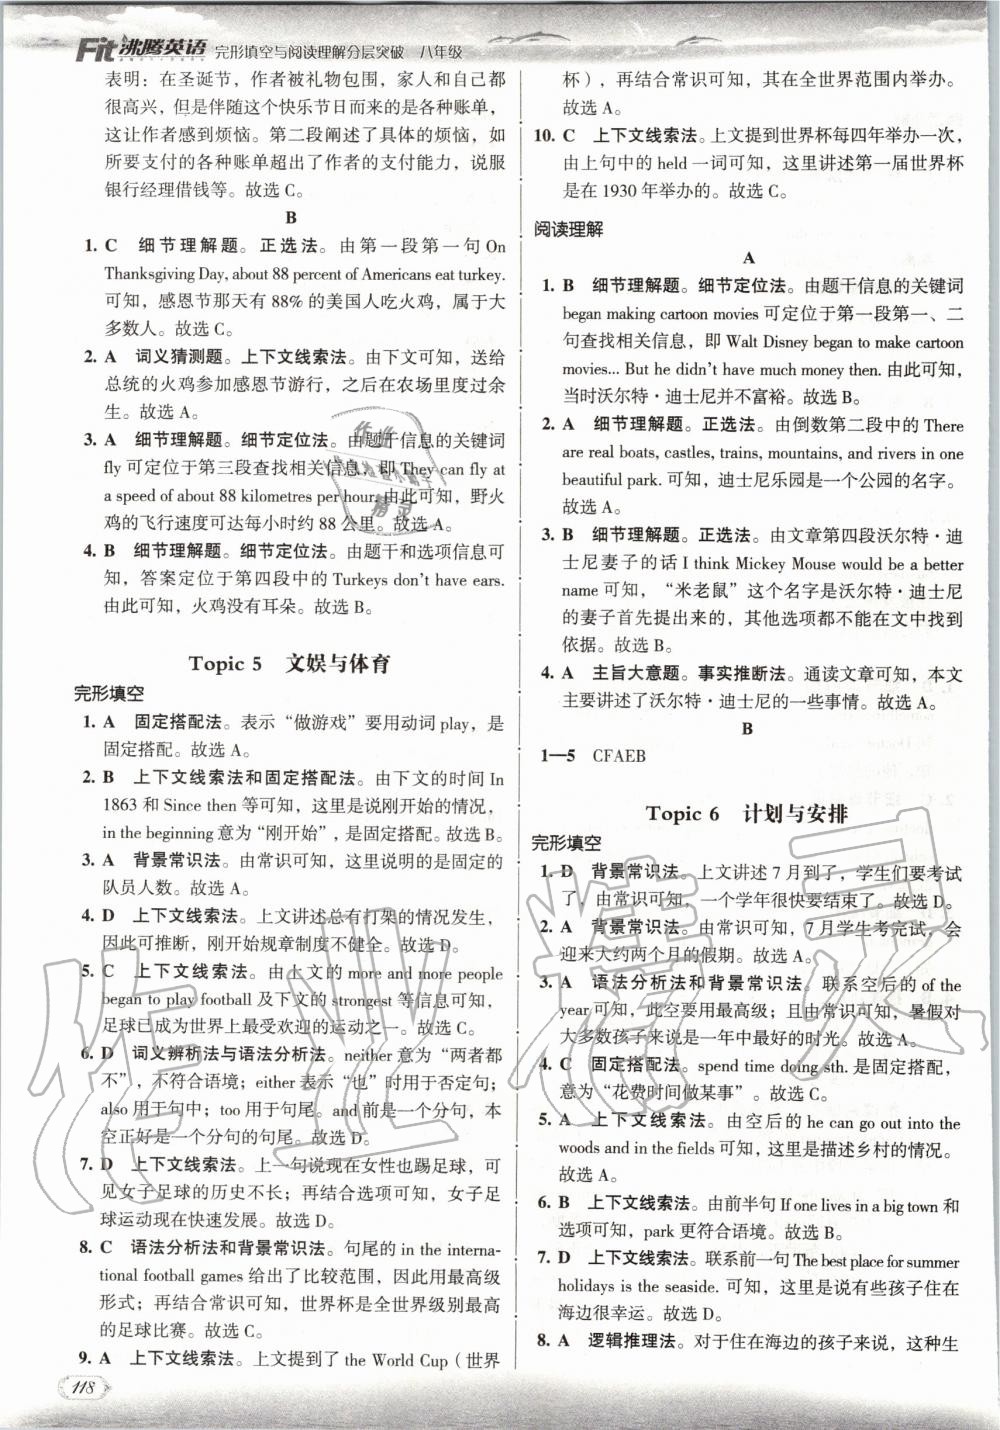 Fit 沸腾英语 完形填空与阅读理解分层突破 八年级
表明：在圣诞节，作者被礼物包围，家人和朋友都
很高兴，但是伴随这个快乐节日而来的是各种账单，
这让作者感到烦恼。第二段阐述了具体的烦恼，如
所要支付的各种账单超出了作者的支付能力，说服
银行经理借钱等。故选 C。
B
1. C 细节理解题。正选法。由第一段第一句 On
Thanksgiving Day, about 88 percent of Americans eat turkey.
可知，感恩节那天有 88% 的美国人吃火鸡，属于大
多数人。故选 C。
2. A 词义猜测题。上下文线索法。由下文可知，送给
总统的火鸡参加感恩节游行，之后在农场里度过余
生。故选 A。
3. A 细节理解题。细节定位法。由题干信息的关键词
fly 可定位于第三段查找相关信息，即 They can fly at
a speed of about 88 kilometres per hour. 由此可知，野火
鸡的飞行速度可达每小时约 88 公里。故选 A。
4. B 细节理解题。细节定位法。由题干和选项信息可
知，答案定位于第四段中的 Turkeys don't have ears.
由此可知，火鸡没有耳朵。故选 B。
Topic 5 文娱与体育
完形填空
1. A 固定搭配法。表示“做游戏”要用动词 play，是
固定搭配。故选 A。
2. B 上下文线索法和固定搭配法。由下文的时间 In
1863 和 Since then 等可知，这里是说刚开始的情况，
in the beginning 意为“刚开始”，是固定搭配。故选 B。
3. A 背景常识法。由常识可知，这里说明的是固定的
队员人数。故选 A。
4. D 上下文线索法。上文讲述总有打架的情况发生，
因此可推断，刚开始规章制度不健全。故选 D。
5. C 上下文线索法。由上文的 more and more people
began to play football 及下文的 strongest 等信息可知，
足球已成为世界上最受欢迎的运动之一。故选 C。
6. D 词义辨析法与语法分析法。neither 意为“两者都
不”，不符合语境；either 表示“也”时用于否定句；
also 用于句中；too 用于句尾。and 前是一个分句，本
空正好是一个分句的句尾。故选 D。
7. D 上下文线索法。上一句说现在女性也踢足球，可
见女子足球的历史不长；再结合选项可知，女子足
球运动现在快速发展。故选 D。
8. C 语法分析法和背景常识法。句尾的 in the interna-
tional football games 给出了比较范围，因此用最高级
形式；再结合常识可知，世界杯是全世界级别最高
的足球比赛。故选 C。
9. A 上下文线索法。上文提到了 the World Cup（世界
118
杯），再结合常识可知，其在全世界范围内举办。
故选 A。
10. C 上下文线索法。上文提到世界杯每四年举办一次，
由上句中的 held 一词可知，这里讲述第一届世界杯
是在 1930 年举办的。故选 C。
阅读理解
A
1. B 细节理解题。细节定位法。由题干信息的关键词
began making cartoon movies 可定位于第一段第一、二
句查找相关信息，即 Walt Disney began to make cartoon
movies... But he didn't have much money then. 由此可知，
当时沃尔特·迪士尼并不富裕。故选 B。
2. A 细节理解题。正选法。由倒数第二段中的 There
are real boats, castles, trains, mountains, and rivers in one
beautiful park. 可知，迪士尼乐园是一个公园的名字。
故选 A。
3. B 细节理解题。正选法。由文章第四段沃尔特·迪
士尼妻子的话 I think Mickey Mouse would be a better
name 可知，“米老鼠”这个名字是沃尔特·迪士尼
的妻子首先提出来的，其他选项都不能在文中找到
依据。故选 B。
4. A 主旨大意题。事实推断法。通读文章可知，本文
主要讲述了沃尔特·迪士尼的一些事情。故选 A。
B
1—5 CFAEB
Topic 6 计划与安排
完形填空
1. D 背景常识法。上文讲述 7 月到了，学生们要考试
了，由常识可知，一个学年很快要结束了。故选 D。
2. A 背景常识法。由常识可知，7 月学生考完试，会
迎来大约两个月的假期。故选 A。
3. A 语法分析法和背景常识法。联系空后的 of the
year 可知，此空要用最高级；且由常识可知，暑假对
大多数孩子来说是一年中最好的时光。故选 A。
4. C 固定搭配法。spend time doing sth. 是固定搭配，
意为“花费时间做某事”。故选 C。
5. A 上下文线索法。由空后的 he can go out into the
woods and in the fields 可知，这里是描述乡村的情况。
故选 A。
6. B 上下文线索法。由前半句 If one lives in a big town 和
选项可知，park 更符合语境。故选 B。
7. D 上下文线索法。联系前一句 The best place for summer
holidays is the seaside. 可知，这里是说有些孩子住在
海边很幸运。故选 D。
8. A 逻辑推理法。对于住在海边的孩子来说，这种生
作业精灵